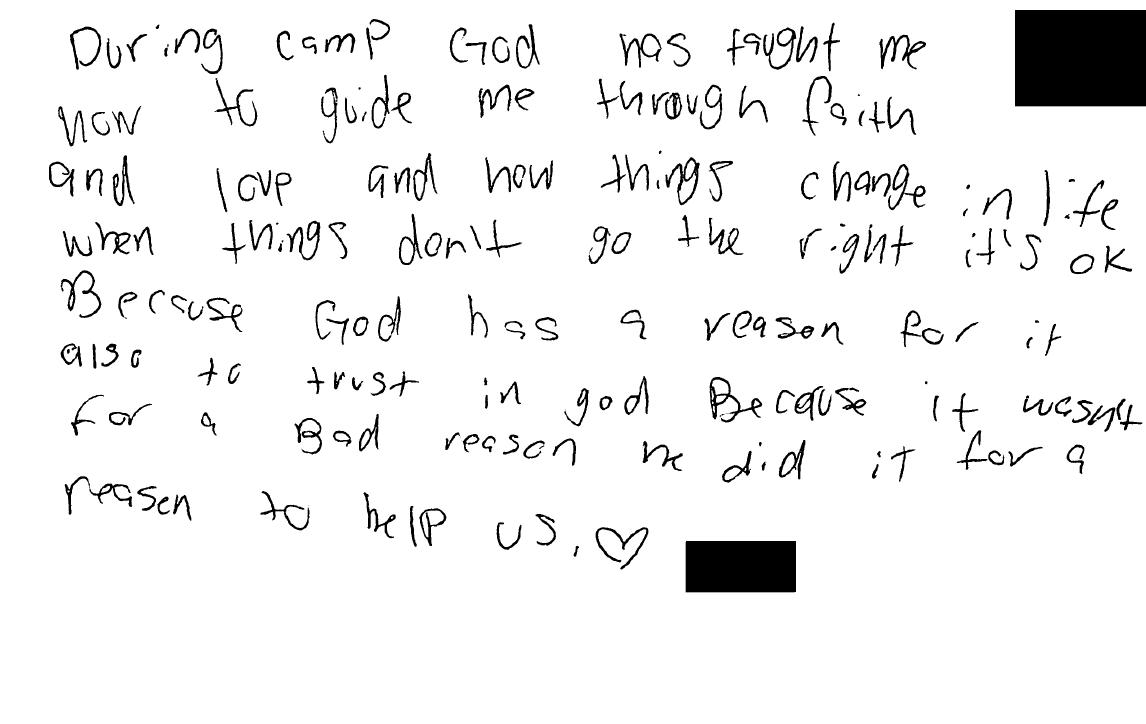 During camp God has taught me
how to guide me through faith
and love and how things change in life
when things don't go the right it's ok
Because God has a reason for it
also to trust in god Because it wasn't
for a Bad reason he did it for a
reason to help us. ♡